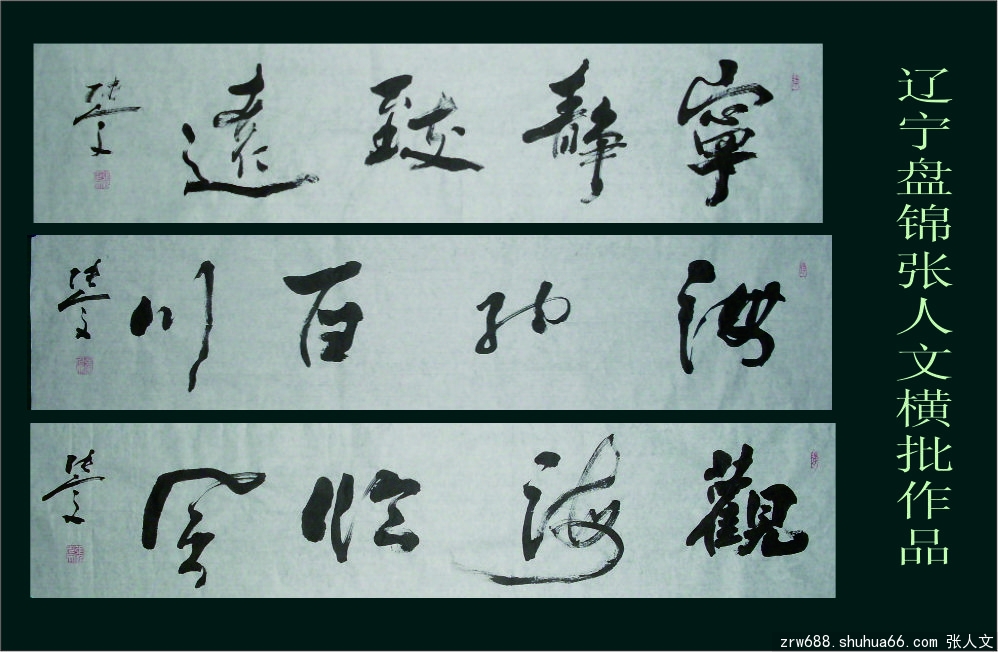 辽宁盘锦张人文横批作品
寧静致遠
张人文
海纳百川
张人文
觀海临风
张人文
zrw688.shuhua66.com 张人文